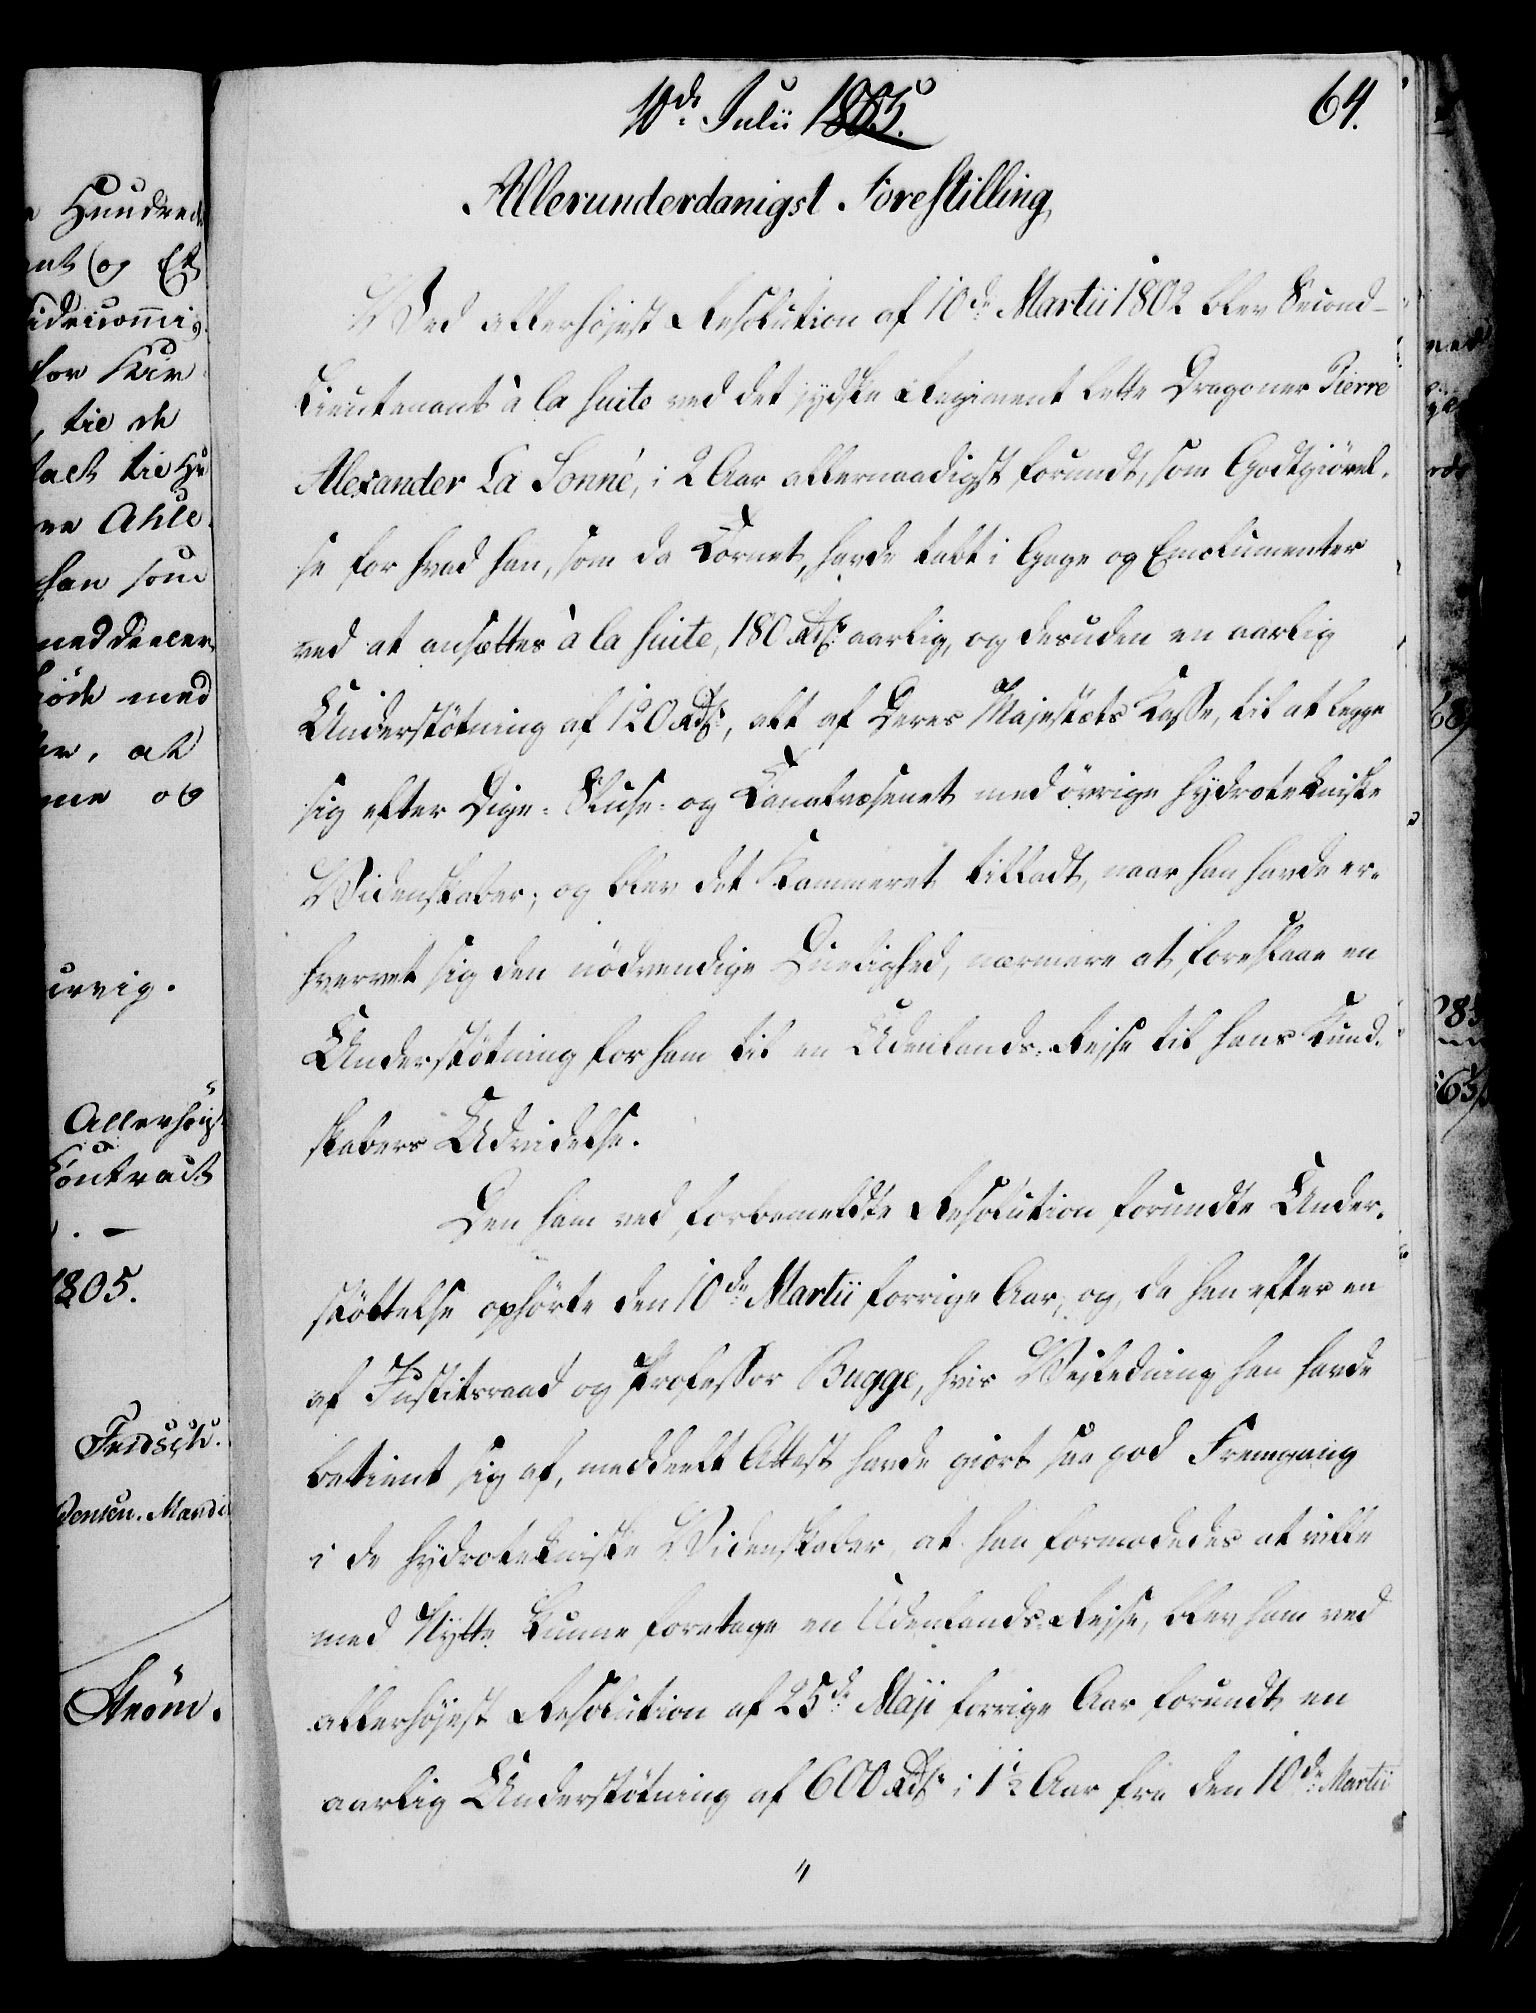 10de Julii 1805.
64.
Allerunderdanigst Forestilling,
Ved allerhöjest Resolution af 10de Martii 1802 blev Second-
Lieutenant à la suite ved det jydske Regiment lette Dragoner Pierre
Alexander La Sonné, i 2 Aar allernaadigst forundt, som Godtgiörel-
se for hvad han, som da Cornet, havde tabt i Gage og Emolumenter
ved at ansættes à la suite, 180 Rdlr aarlig, og desuden en aarlig
Understötning af 120 Rdlr, alt af Deres Majestæts Kasse, til at legge
sig efter Dige- Sluse- og Canalvæsenet med övrige hydrotekniske
Videnskaber; og blev det Kammeret tilladt, naar han havde er-
hvervet sig den nödvendige Duelighed, nærmere at foreslaae en
Understötning for ham til en Udenlands-Rejse til hans Kund-
skabers Udvidelse.
Den ham ved forbemeldte Resolution forundte Under-
stöttelse ophörte den 10de Martii forrige Aar, og, da han efter en
af Justitsraad og Professor Bugge, hvis Vejledning han havde
betient sig af, meddeelt Attest havde giort saa god Fremgang
i de hydrotekniske Videnskaber, at han formodedes at ville
med Nytte kunne foretage en Udenlands-Rejse, blev ham ved
allerhöjest Resolution af 25de Maji forrige Aar forundt en
aarlig Understötning af 600 Rdlr i 1½ Aar fra den 10de Martii
Hundrede
og Et
for
, til de
som
med
, at
og
Allerhöist
Contract
1805.
Fridsch.
Jensen. Mandix
Ström.